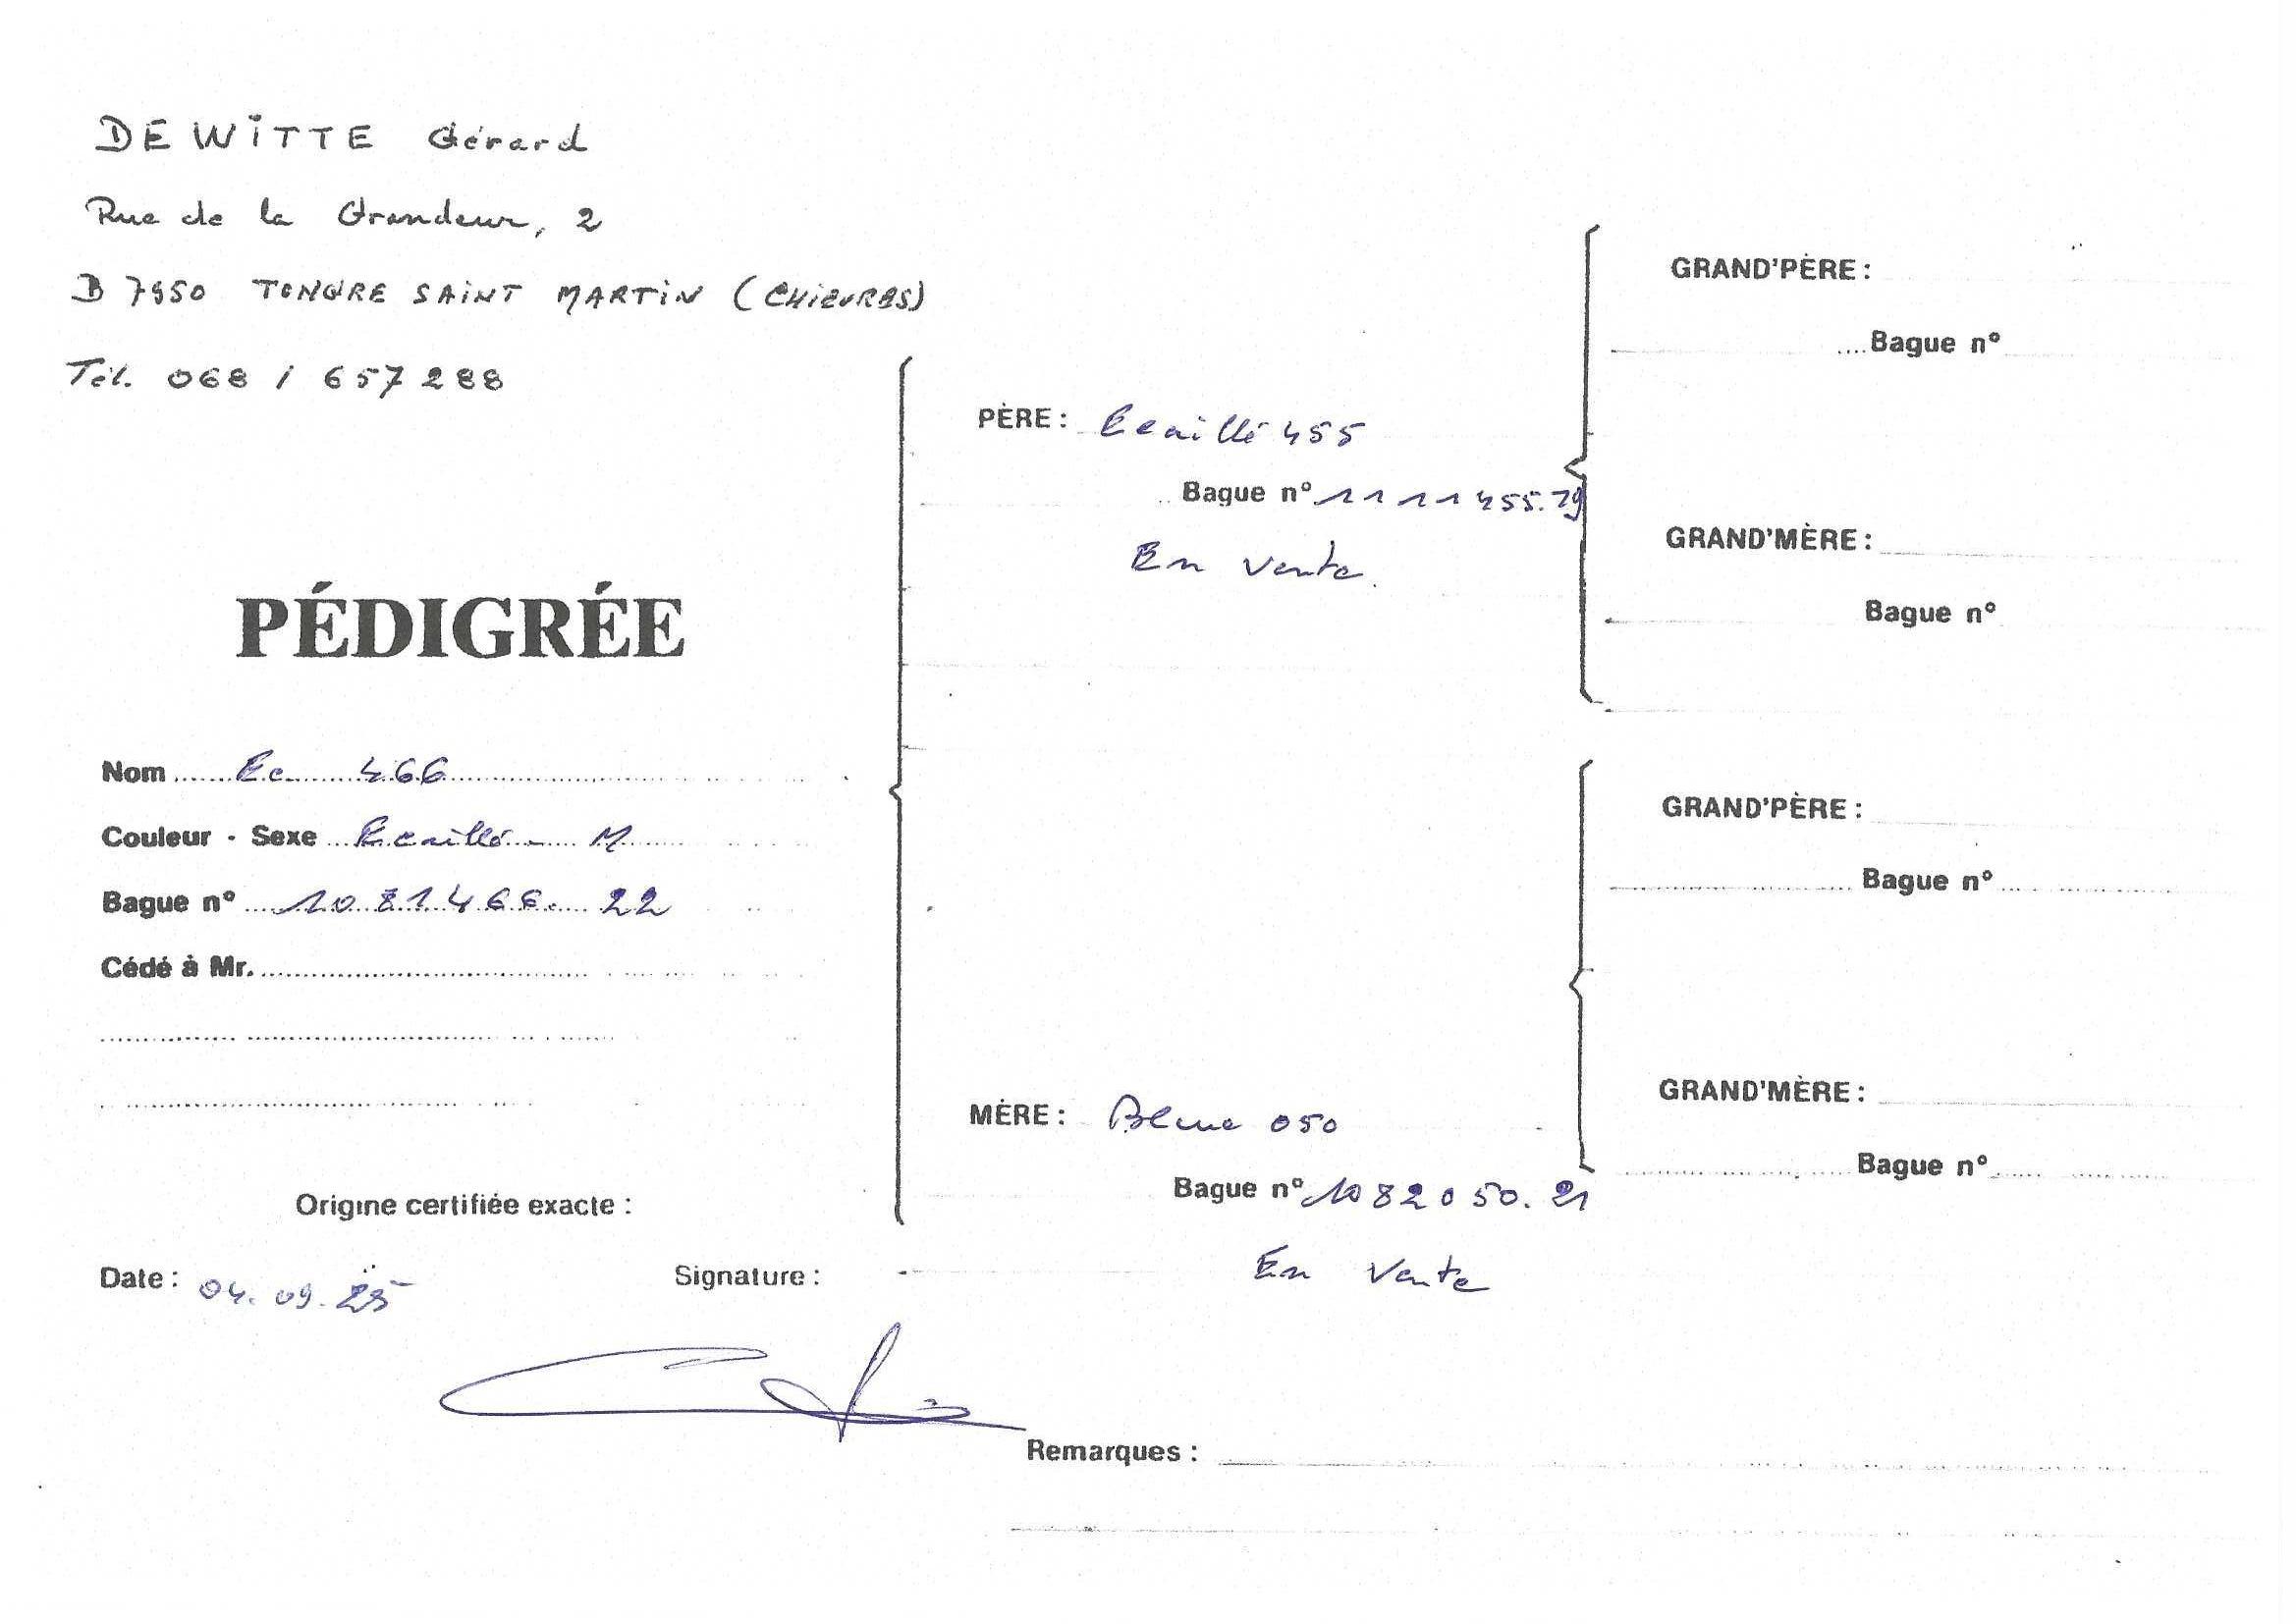 DEWITTE Gérard
Rue de la Grandeur, 2
B 7950 TONGRE SAINT MARTIN (CHIEVRES)
Tél. 068 / 657288
PÉDIGRÉE
Nom Ec 466
Couleur - Sexe Ecaillé - M
Bague nº 1081466. 22
Cédé à Mr.
Origine certifiée exacte :
Date : 04.09.25
Signature :
PÈRE : Ecaillé 455
Bague nº 1111455.19
En vente.
MÈRE : Bleue 050
Bague nº 1082050.21
En vente
GRAND'PÈRE :
Bague nº
GRAND'MÈRE :
Bague nº
GRAND'PÈRE :
Bague nº
GRAND'MÈRE :
Bague nº
Remarques :